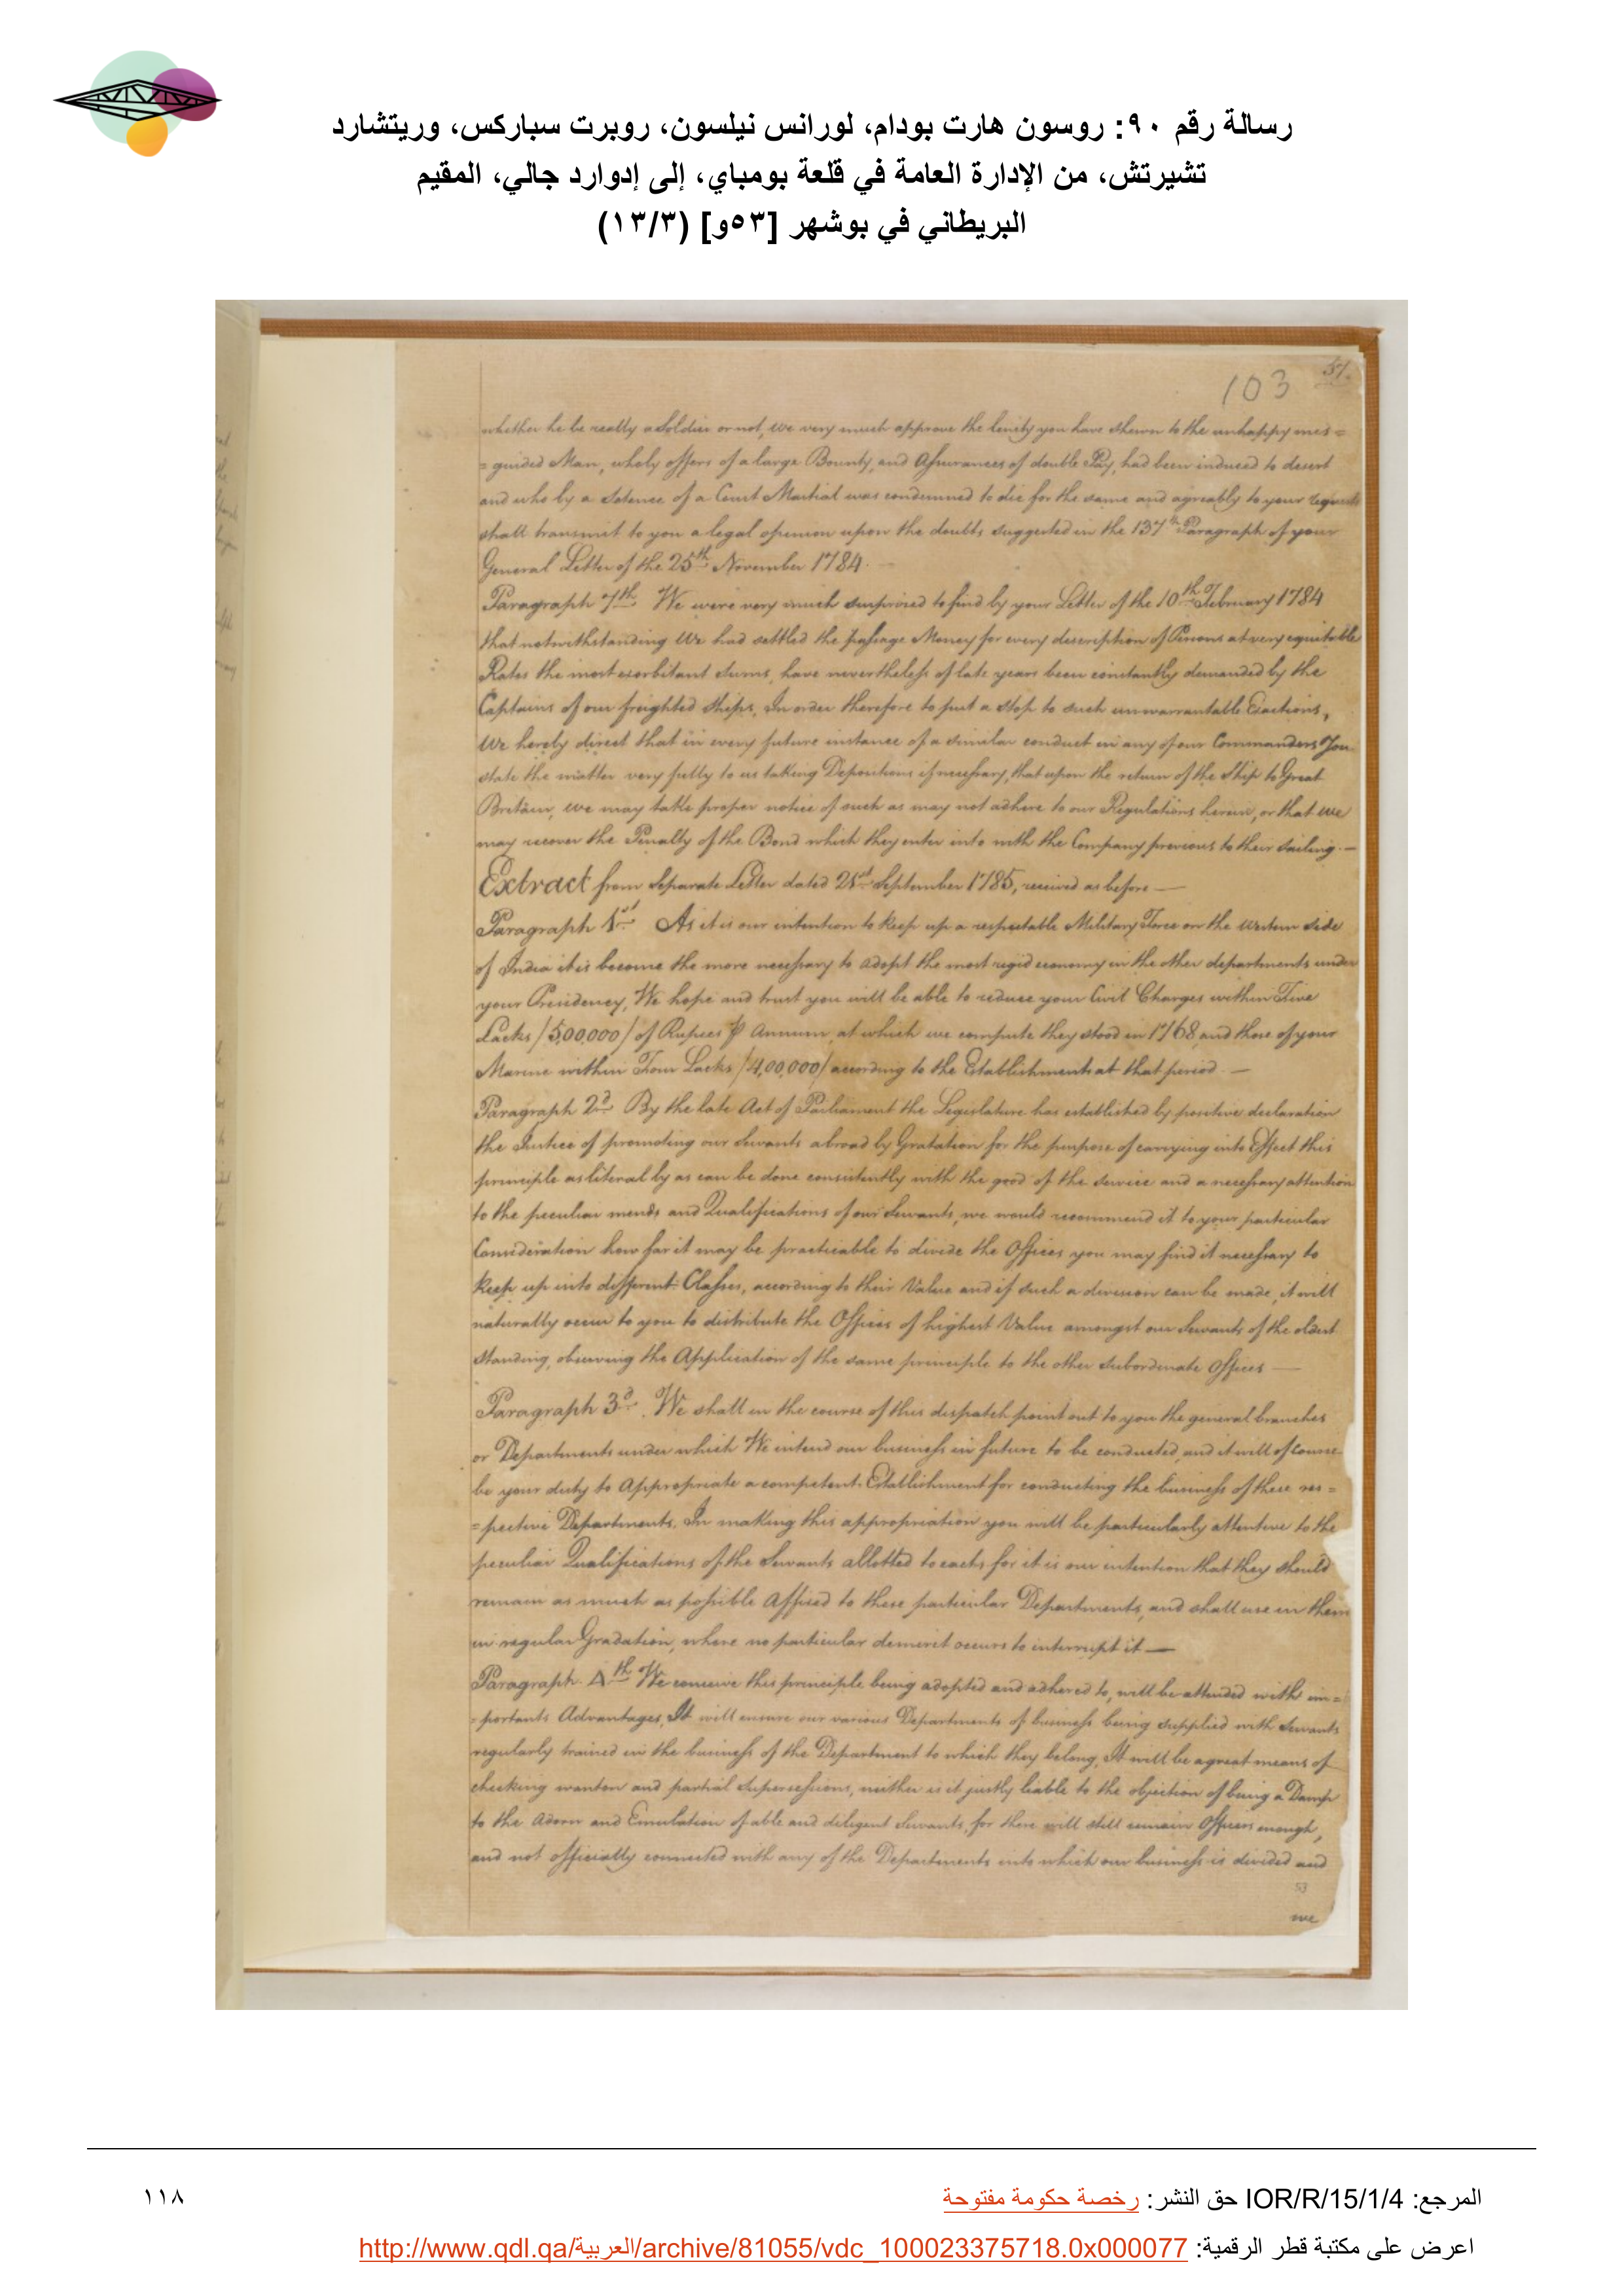 رسالة رقم ٩٠: روسون هارت بودام، لورانس نيلسون، روبرت سباركس، وريتشارد
تشيرتش، من الإدارة العامة في قلعة بومباي، إلى إدوارد جالي، المقيم
البريطاني في بوشهر [٥٣و] (١٣/٣)
51.
103
whether he be really a Soldier or not, we very much approve the lenity you have shewn to the unhappy mis=
=guided Man, who by offers of a large Bounty, and Assurances of double Pay, had been induced to desert
and who by a Sentence of a Court Martial was condemned to die for the same and agreably to your request
shall transmit to you a legal opinion upon the doubts suggested in the 137th Paragraph of your
General Letter of the 25th November 1784.
Paragraph 7th We were very much surprised to find by your Letter of the 10th February 1784
that notwithstanding We had settled the passage Money for every description of Persons at very equitable
Rates the most exorbitant Sums, have nevertheless of late years been constantly demanded by the
Captains of our freighted Ships. In order therefore to put a Stop to such unwarrantable Exactions,
We hereby direct that in every future instance of a similar conduct in any of our Commanders You
state the matter very fully to us taking Depositions if necessary, that upon the return of the Ship to Great
Britain, we may take proper notice of such as may not adhere to our Regulations herein, or that we
may recover the Penalty of the Bond which they enter into with the Company previous to their sailing. —
Extract from Separate Letter dated 21st September 1785, received as before —
Paragraph 1st As it is our intention to keep up a respectable Military Force on the Western Side
of India it is become the more necessary to adopt the most rigid economy in the other departments under
your Presidency, We hope and trust you will be able to reduce your Civil Charges within Five
Lacks /5,00,000/ of Rupees ⅌ Annum, at which we compute they stood in 1768 and those of your
Marine within Four Lacks /4,00,000/ according to the Establishment at that period. —
Paragraph 2d By the late Act of Parliament the Legislature has established by positive declaration
the Justice of promoting our Servants abroad by Gratation for the purpose of carrying into Effect this
principle as literally as can be done consistently with the good of the service and a necessary attention
to the peculiar and Qualifications of our Servants, we would recommend it to your particular
Consideration how far it may be practicable to divide the Offices you may find it necessary to
keep up into different Classes, according to their Value and if such a division can be made, it will
naturally occur to you to distribute the Offices of highest Value amongst our Servants of the oldest
Standing, observing the Application of the same principle to the other Subordinate Offices —
Paragraph 3d. We shall in the course of this dispatch point out to you the general branches
or Departments under which We intend our business in future to be conducted, and it will of Course
be your duty to Appropriate a competent Establishment for conducting the business of these res=
=pective Departments. In making this appropriation you will be particularly attentive to the
peculiar Qualifications of the Servants allotted to each, for it is our intention that they should
remain as much as possible Affixed to these particular Departments, and shall rise in them
in regular Gradation, where no particular demerit occurs to interrupt it —
Paragraph 4th We conceive this principle being adopted and adhered to, will be attended with im=
=portants Advantages, It will ensure our various Departments of business being supplied with Servants
regularly trained in the business of the Department to which they belong, It will be a great means of
checking wanton and partial Supersessions, neither is it justly liable to the objection of being a Damp
to the and Emulation of able and diligent Servants, for there will still remain Offices enough,
and not officially connected with any of the Departments into which our business is divided and
53
we
المرجع: IOR/R/15/1/4 حق النشر: رخصة حكومة مفتوحة
١١٨
اعرض على مكتبة قطر الرقمية: http://www.qdl.qa/العربية/archive/81055/vdc_100023375718.0x000077